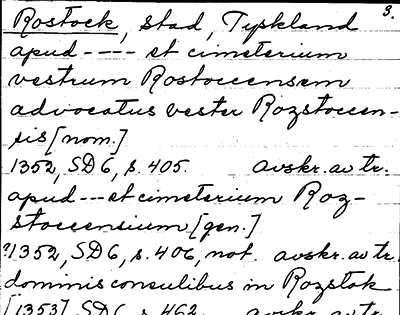 3.
Rostock, stad, Tyskland
apud ---- et cimeterium
vestrum Rostoccensem
advocatus vester Rozstoccen-
sis [nom.]
1352, SD6, s. 405. avskr. av tr.
apud --- et cimeterium Roz-
stoccensium [gen.]
?1352, SD6, s. 406, not. avskr. av tr.
dominis consulibus in Rozstok
[1353] SD6, s. 462. avskr. av tr.